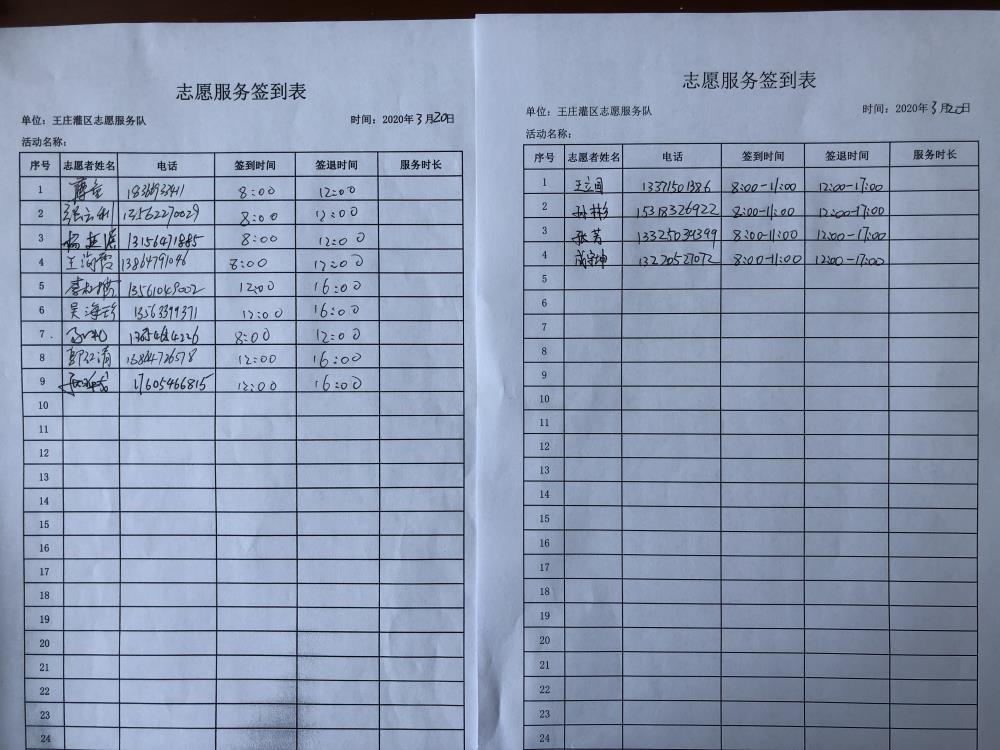 志愿服务签到表
单位：王庄灌区志愿服务队 时间：2020年3月20日
活动名称：
序号 志愿者姓名 电话 签到时间 签退时间 服务时长
1 8:00 12:00
2 13562270029 8:00 12:00
3 13156471885 8:00 12:00
4 王海霞 13864791046 8:00 12:00
5 13561049002 12:00 16:00
6 吴海珍 13563399371 12:00 16:00
7 8:00 12:00
8 郭红涓 13864726578 12:00 16:00
9 17605466815 12:00 16:00
10
11
12
13
14
15
16
17
18
19
20
21
22
23
24
志愿服务签到表
单位：王庄灌区志愿服务队 时间：2020年3月20日
活动名称：
序号 志愿者姓名 电话 签到时间 签退时间 服务时长
1 王立国 13371501386 8:00-11:00 12:00-17:00
2 孙彬 15318326922 8:00-11:00 12:00-17:00
3 张芳 13325039399 8:00-11:00 12:00-17:00
4 成守坤 13220527072 8:00-11:00 12:00-17:00
5
6
7
8
9
10
11
12
13
14
15
16
17
18
19
20
21
22
23
24